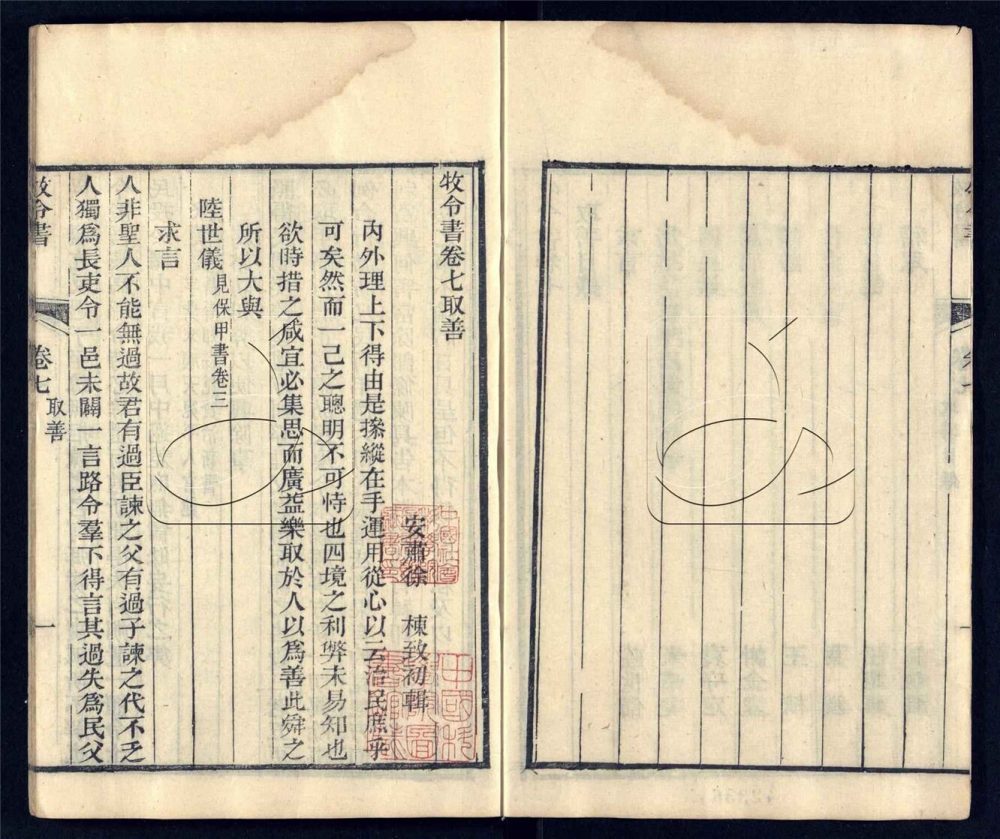 牧令書卷七取善
安肅徐　棟致初輯
內外理上下得由是操縱在手運用從心以云治民庶乎
可矣然而一己之聰明不可恃也四境之利弊未易知也
欲時措之咸宜必集思而廣益樂取於人以為善此舜之
所以大與
陸世儀見保甲書卷三
求言
人非聖人不能無過故君有過臣諫之父有過子諫之代不乏
人獨為長吏令一邑未闢一言路令羣下得言其過失為民父
牧令書
卷七
取善
一